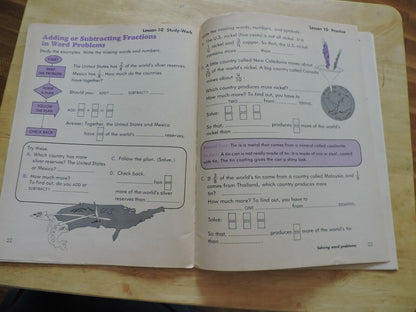 Lesson 10 Study-Work
Adding or Subtracting Fractions
in Word Problems
Study the examples. Write the missing words and numbers.
START
READ THE PROBLEM
The United States has of the world's silver reserves.
Mexico has How much do the countries
have together?
MAKE A PLAN
Should you: ADD? SUBTRACT?
FOLLOW THE PLAN
ADD
CHECK BACK
Answer: Together, the United States and Mexico
have of the world's reserves.
Try these.
A. Which country has more
silver reserves? The United States
or Mexico?
B. How much more?
To find out, do you ADD or
SUBTRACT?
C. Follow the plan. (Solve.)
D. Check back.
has
more of the world's silver
reserves than
22
Lesson 10 Practice
Write the missing words, numbers, and symbols.
The U.S. nickel (five cents) is not all nickel. It is
nickel and copper. So that, the U.S. nickel
contains more than
A little country called New Caledonia mines about
of the world's nickel. A big country called Canada
mines about
Which country produces more nickel?
How much more? To find out, you have to
TWO from
Solve:
So that, produces more of the world's
nickel than
Tin is a metal that comes from a mineral called cassiterite.
A tin can is not really made of tin. It is made of iron or steel, coated
with tin. The tin coating gives the can a shiny look.
C. If of the world's tin comes from a country called Malaysia, and
comes from Thailand, which country produces more
tin?
How much more? To find out, you have to
ONE from
Solve:
So that, produces more of the world's
tin than
Solving word problems
23